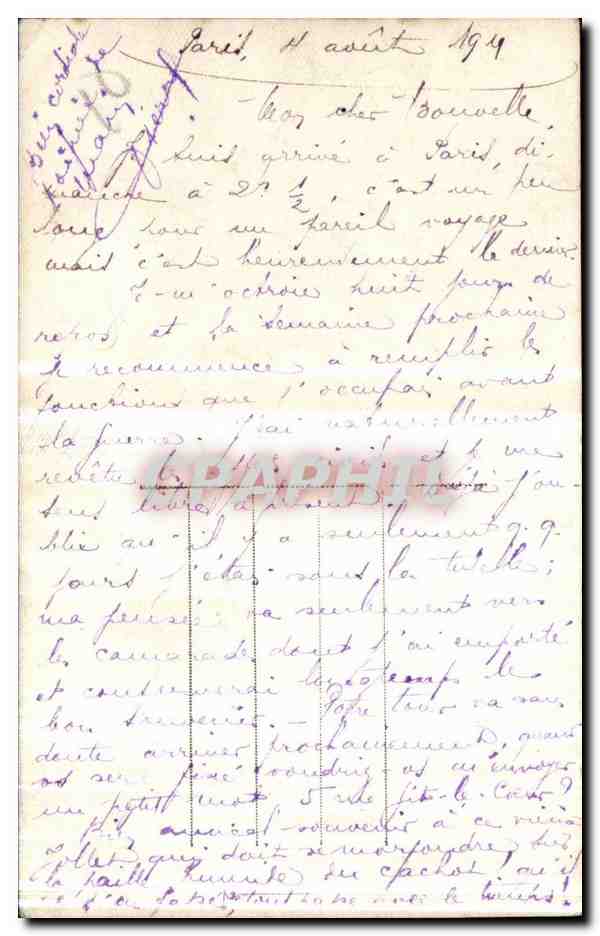 Paris, 4 août 191
Mon cher Bouvelle,
Je suis arrivé à Paris, di-
manche à 2h 1/2, c'est un peu
long pour un pareil voyage
mais c'est heureusement le dernier.
On m'octroie huit jours de
repos et la semaine prochaine
je recommence à remplir les
fonctions que j'occupais avant
la guerre. J'ai naturellement
revêtu les et je me
sens libre à présent. Déjà j'ou-
blie qu'il y a seulement q.q.
jours j'étais sous la tutelle;
ma pensée va seulement vers
les camarades dont j'ai emporté
et conserverai longtemps le
bon souvenir. — Votre tour va sans
doute arriver prochainement, quand
vs serez fixé voudriez-vs m'envoyer
un petit mot 5 rue Gît-le-Cœur?
amical souvenir à ce vieux
Jollet qui doit se morfondre sur
la paille humide du cachot, qu'il
avec le temps!
Bien cordiale
poignée de
main
APHIL